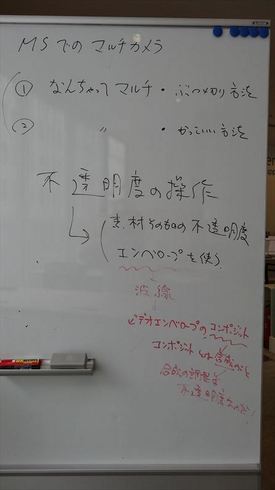 MSでのマルチカメラ
① なんちゃってマルチ・ぶつ切り方法
② 〃 ・かっこいい方法
不透明度の操作
素材そのものの不透明度
エンベロープを使う
波線
ビデオエンベロープのコンポジット
コンポジットとは合成のこと
合成の調整は
不透明度なのだ!